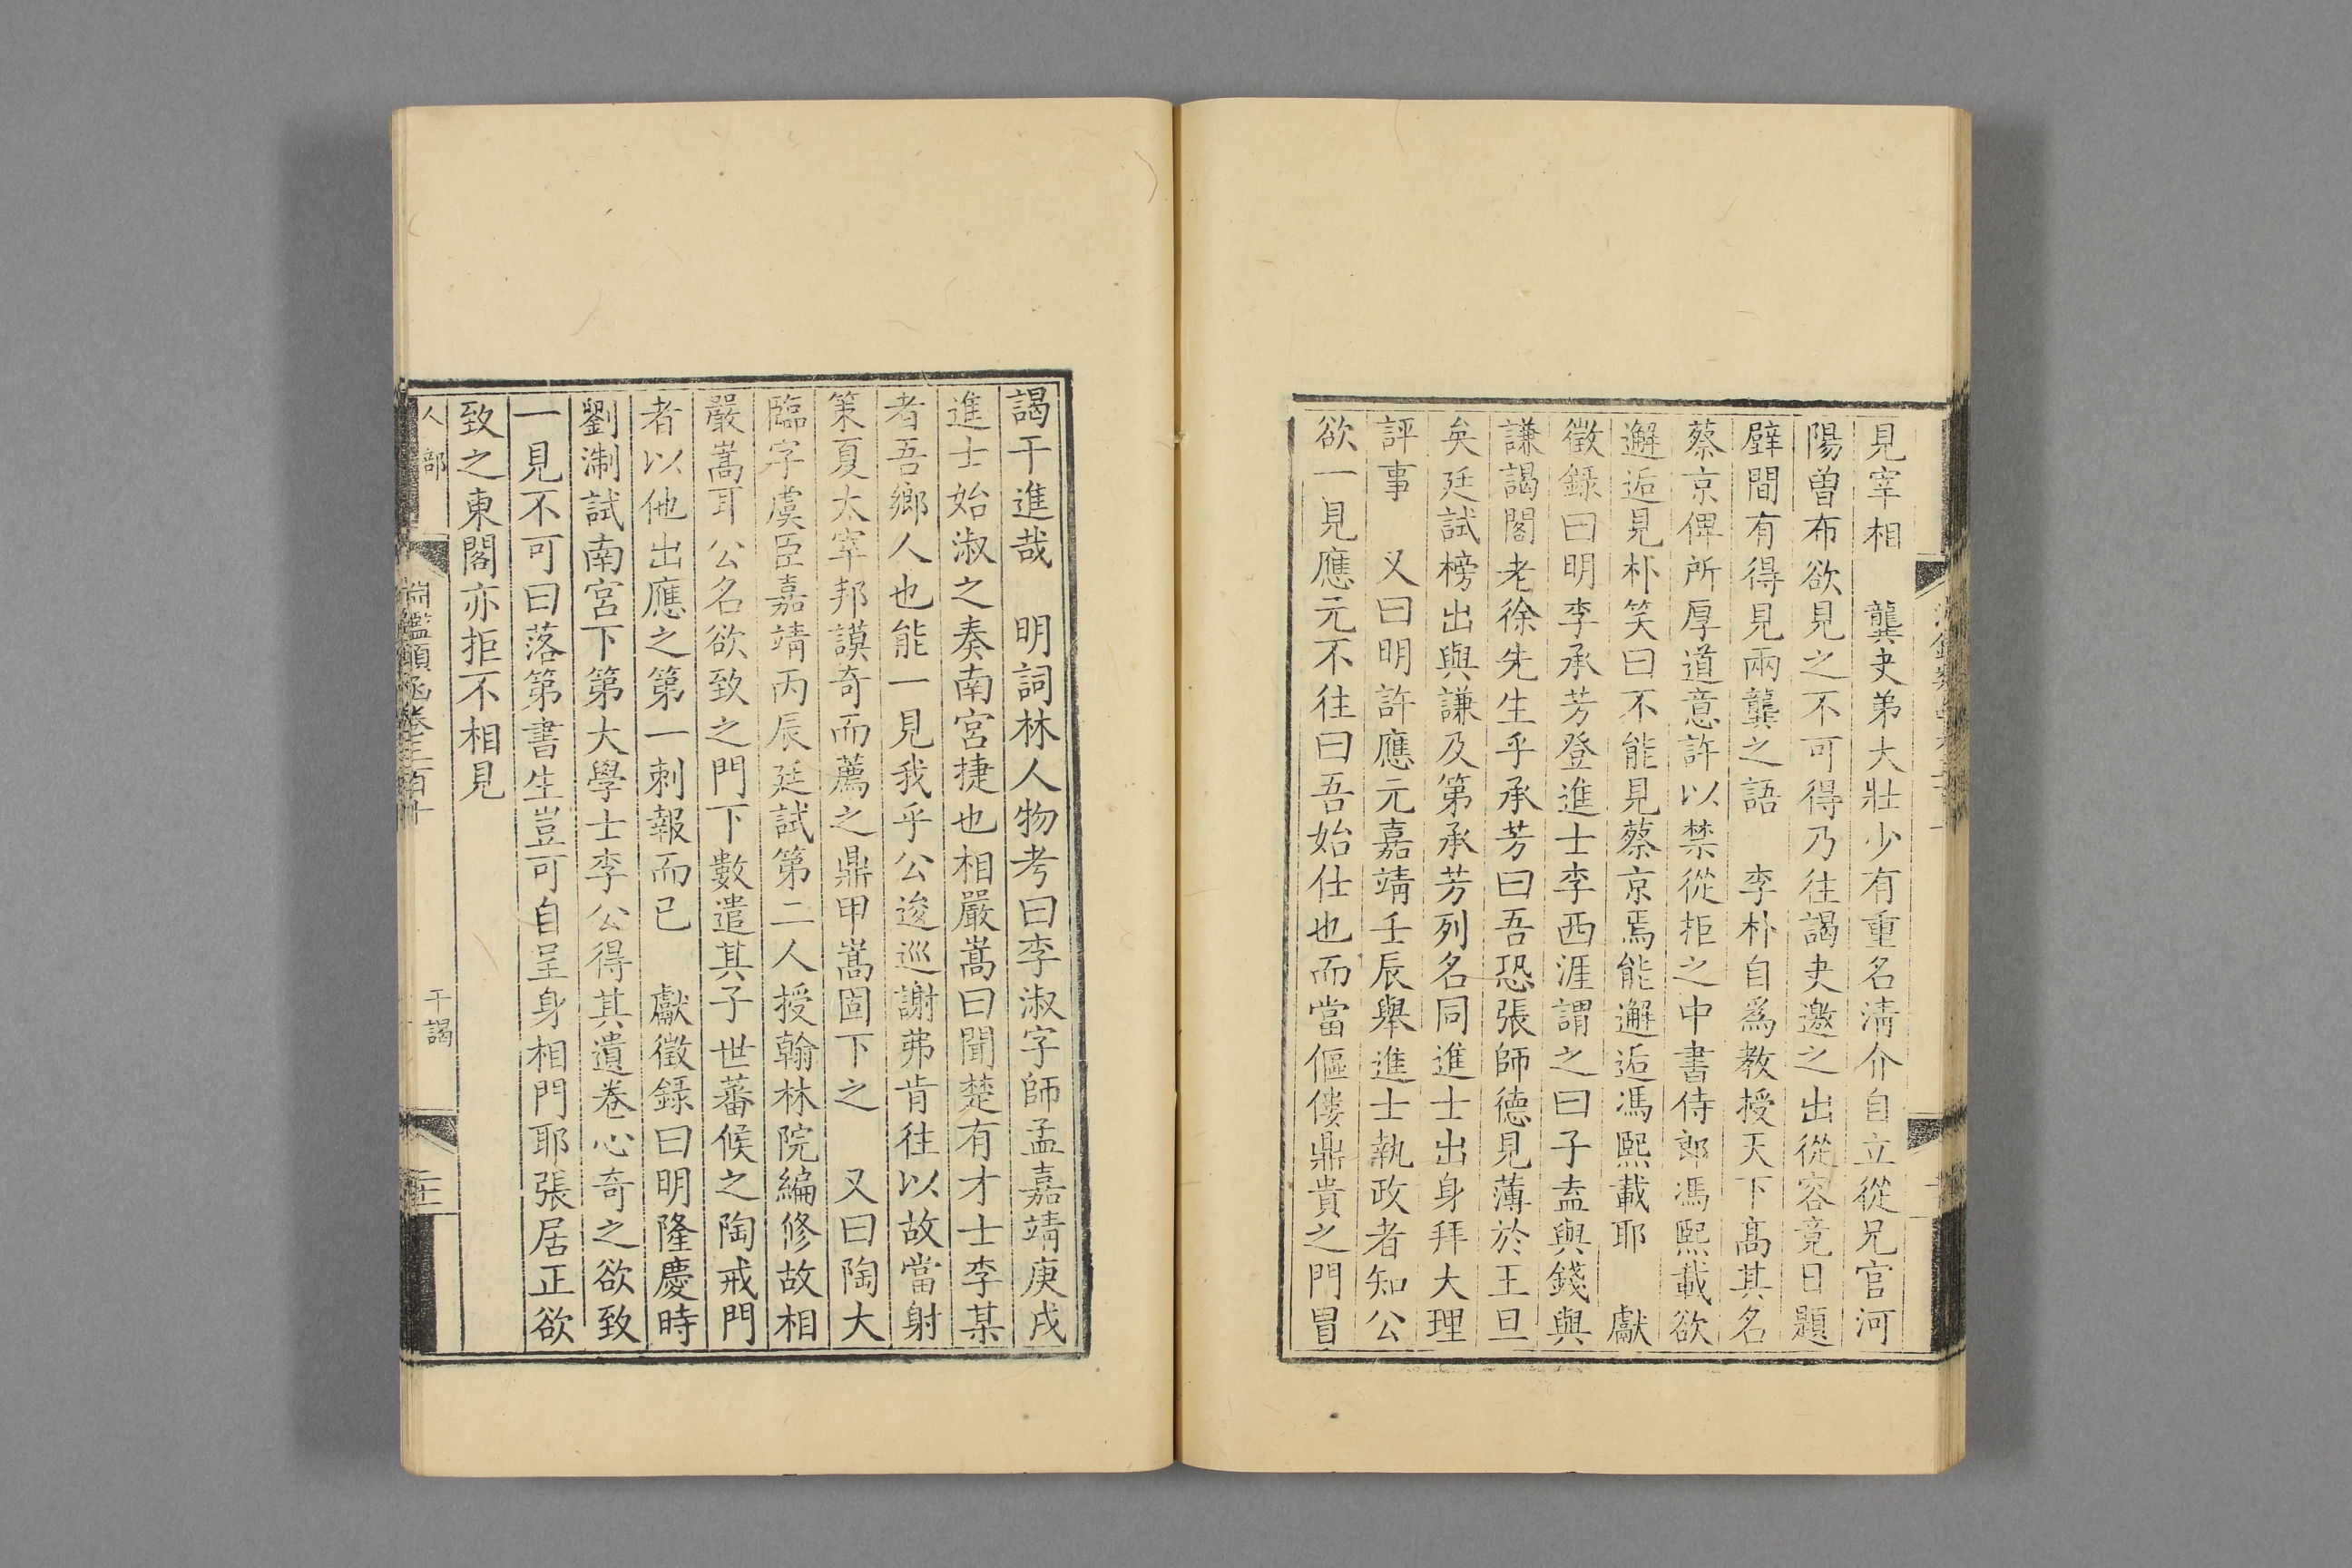 見宰相　龔夬弟大壯少有重名清介自立從兄官河
陽曾布欲見之不可得乃往謁夬邀之出從容竟日題
壁間有得見兩龔之語　李朴自爲教授天下高其名
蔡京俾所厚道意許以禁從拒之中書侍郎馮熙載欲
邂逅見朴笑曰不能見蔡京焉能邂逅馮熙載耶　獻
徵錄曰明李承芳登進士李西涯謂之曰子盍與錢與
謙謁閣老徐先生乎承芳曰吾恐張師德見薄於王旦
矣廷試榜出與謙及第承芳列名同進士出身拜大理
評事　又曰明許應元嘉靖壬辰舉進士執政者知公
欲一見應元不往曰吾始仕也而當傴僂鼎貴之門冒
謁干進哉　明詞林人物考曰李淑字師孟嘉靖庚戌
進士始淑之奏南宮捷也相嚴嵩曰聞楚有才士李某
者吾鄉人也能一見我乎公逡巡謝弗肯往以故當射
策夏太宰邦謨奇而薦之鼎甲嵩固下之　又曰陶大
臨字虞臣嘉靖丙辰廷試第二人授翰林院編修故相
嚴嵩耳公名欲致之門下數遣其子世蕃候之陶戒門
者以他出應之第一刺報而已　獻徵錄曰明隆慶時
劉淛試南宮下第大學士李公得其遺卷心奇之欲致
一見不可曰落第書生豈可自呈身相門耶張居正欲
致之東閣亦拒不相見
人部
淵鑑類函卷三百十
干謁